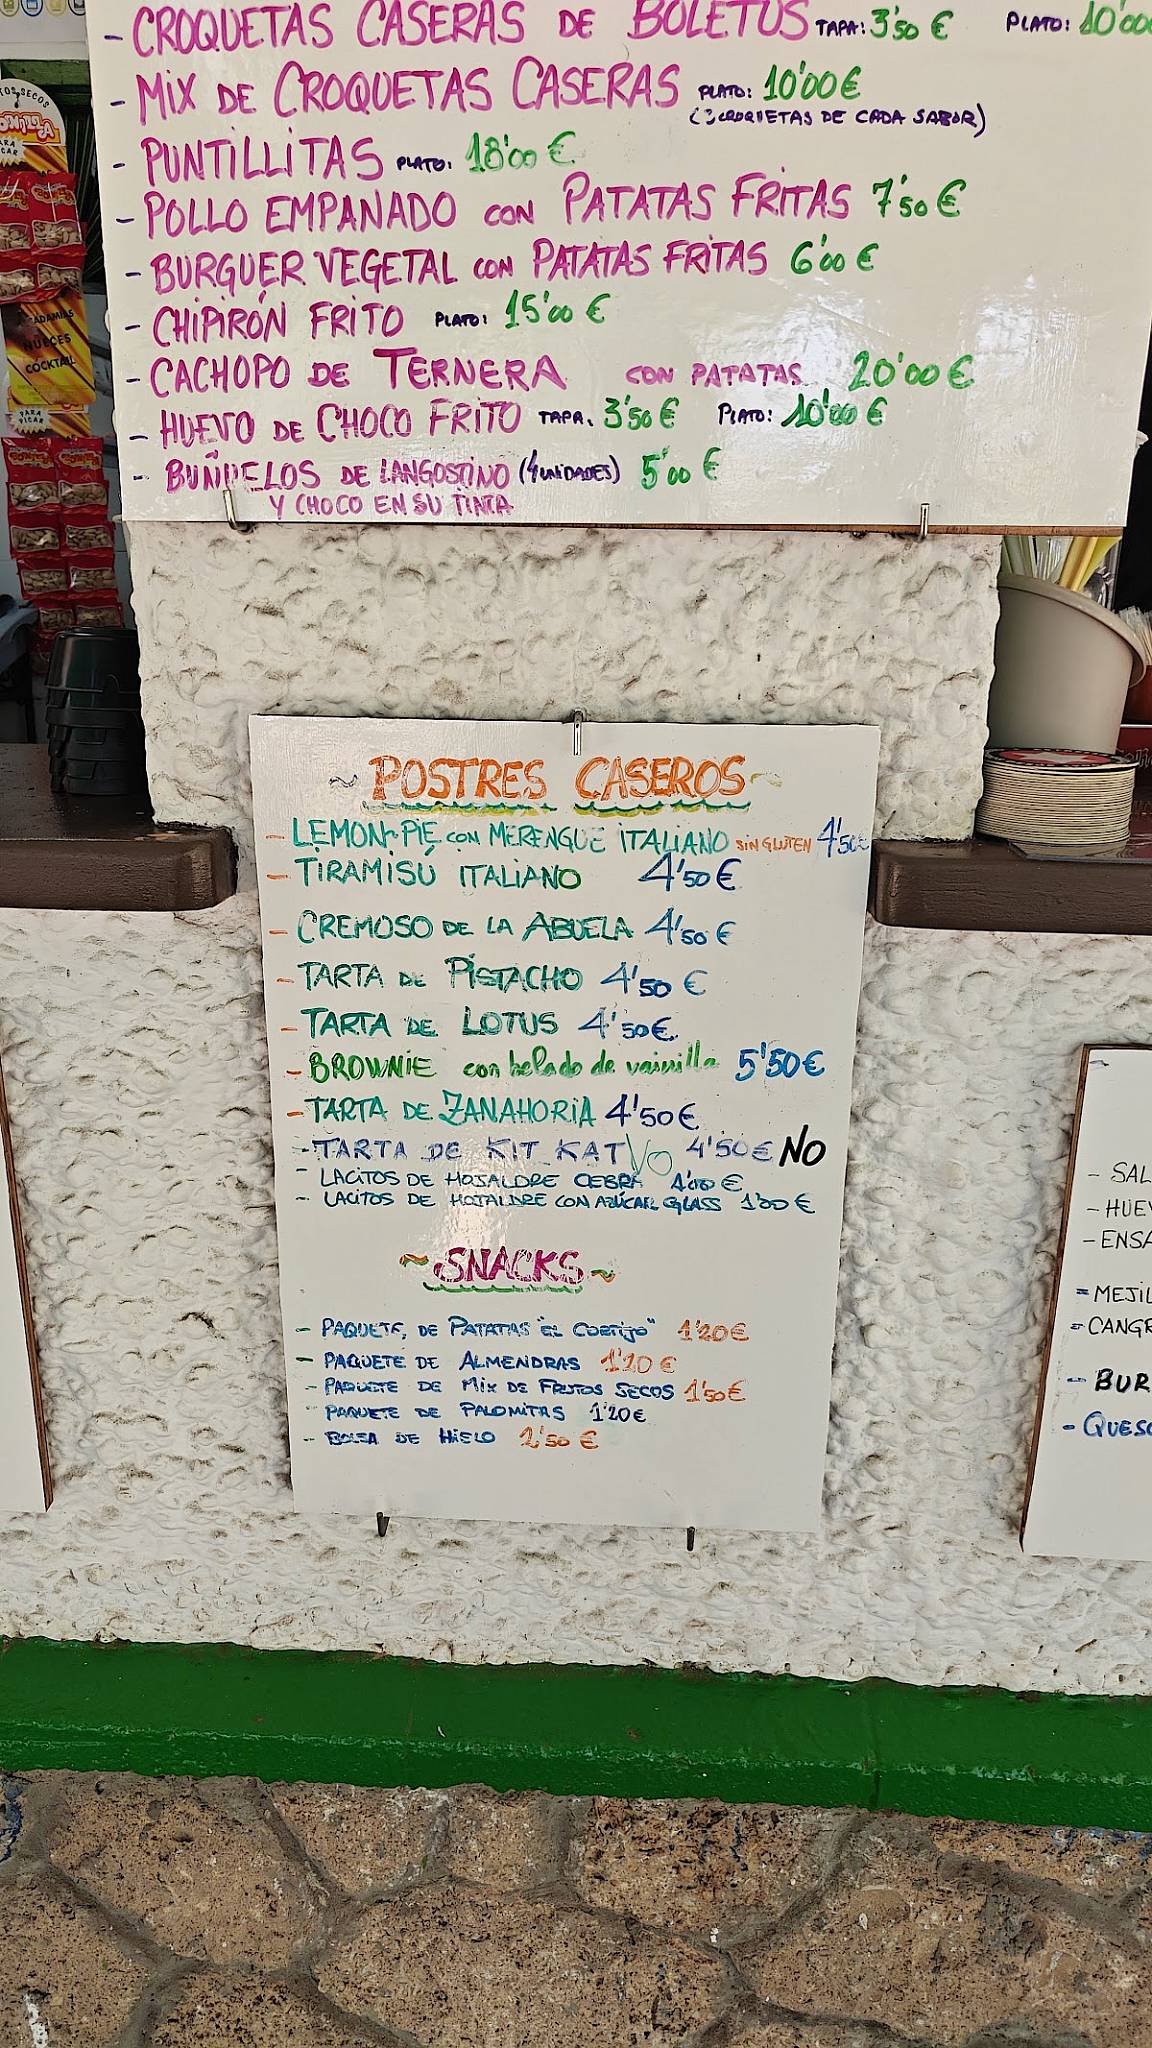 - CROQUETAS CASERAS DE BOLETUS TAPA: 3'50 € PLATO: 10'00
- MIX DE CROQUETAS CASERAS PLATO: 10'00 €
(3 CROQUETAS DE CADA SABOR)
- PUNTILLITAS PLATO: 18'00 €
- POLLO EMPANADO CON PATATAS FRITAS 7'50 €
- BURGUER VEGETAL CON PATATAS FRITAS 6'00 €
- CHIPIRÓN FRITO PLATO: 15'00 €
- CACHOPO DE TERNERA CON PATATAS 20'00 €
- HUEVO DE CHOCO FRITO TAPA. 3'50 € PLATO: 10'00 €
- BUÑUELOS DE LANGOSTINO (4 UNIDADES) 5'00 €
Y CHOCO EN SU TINTA
NUECES
COCKTAIL
PARA
PICAR
~ POSTRES CASEROS ~
- LEMON-PIE CON MERENGUE ITALIANO SIN GLUTEN 4'50€
- TIRAMISÚ ITALIANO 4'50 €
- CREMOSO DE LA ABUELA 4'50 €
- TARTA DE PISTACHO 4'50 €
- TARTA DE LOTUS 4'50€
- BROWNIE con helado de vainilla 5'50€
- TARTA DE ZANAHORIA 4'50€
- TARTA DE KIT KAT 4'50€ NO
- LACITOS DE HOJALDRE CEBRA €
- LACITOS DE HOJALDRE CON AZÚCAR GLASS €
~ SNACKS ~
- PAQUETE DE PATATAS "EL CORTIJO" 1'20€
- PAQUETE DE ALMENDRAS 1'20 €
- PAQUETE DE MIX DE FRUTOS SECOS 1'50€
- PAQUETE DE PALOMITAS 1'20€
- BOLSA DE HIELO €
- SAL
- HUEV
- ENSA
- MEJIL
- CANGR
- BUR
- QUESO